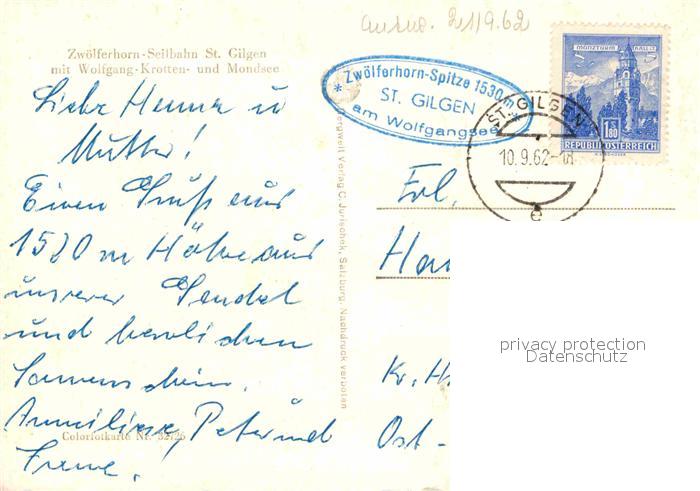 antw. 21/9.62
Zwölferhorn-Seilbahn St. Gilgen
mit Wolfgang-Krotten- und Mondsee
* Zwölferhorn-Spitze 1530 m *
ST. GILGEN
am Wolfgangsee
ST. GILGEN
10.9.62-18
e
MÜNZTURM HALL i.T.
S 1.80
REPUBLIK ÖSTERREICH
Liebe Hanna u
Mutter!
Einen Gruß aus
1520 m Höhe aus
unserer Gondel
und herrlichen
Sonnenschein.
Anneliese, Peter und
Colorfotokarte Nr. 32726
Bergwelt Verlag C. Jurischek, Salzburg. Nachdruck verboten
Frl.
Ha
Kr. H
Ost-
privacy protection
Datenschutz